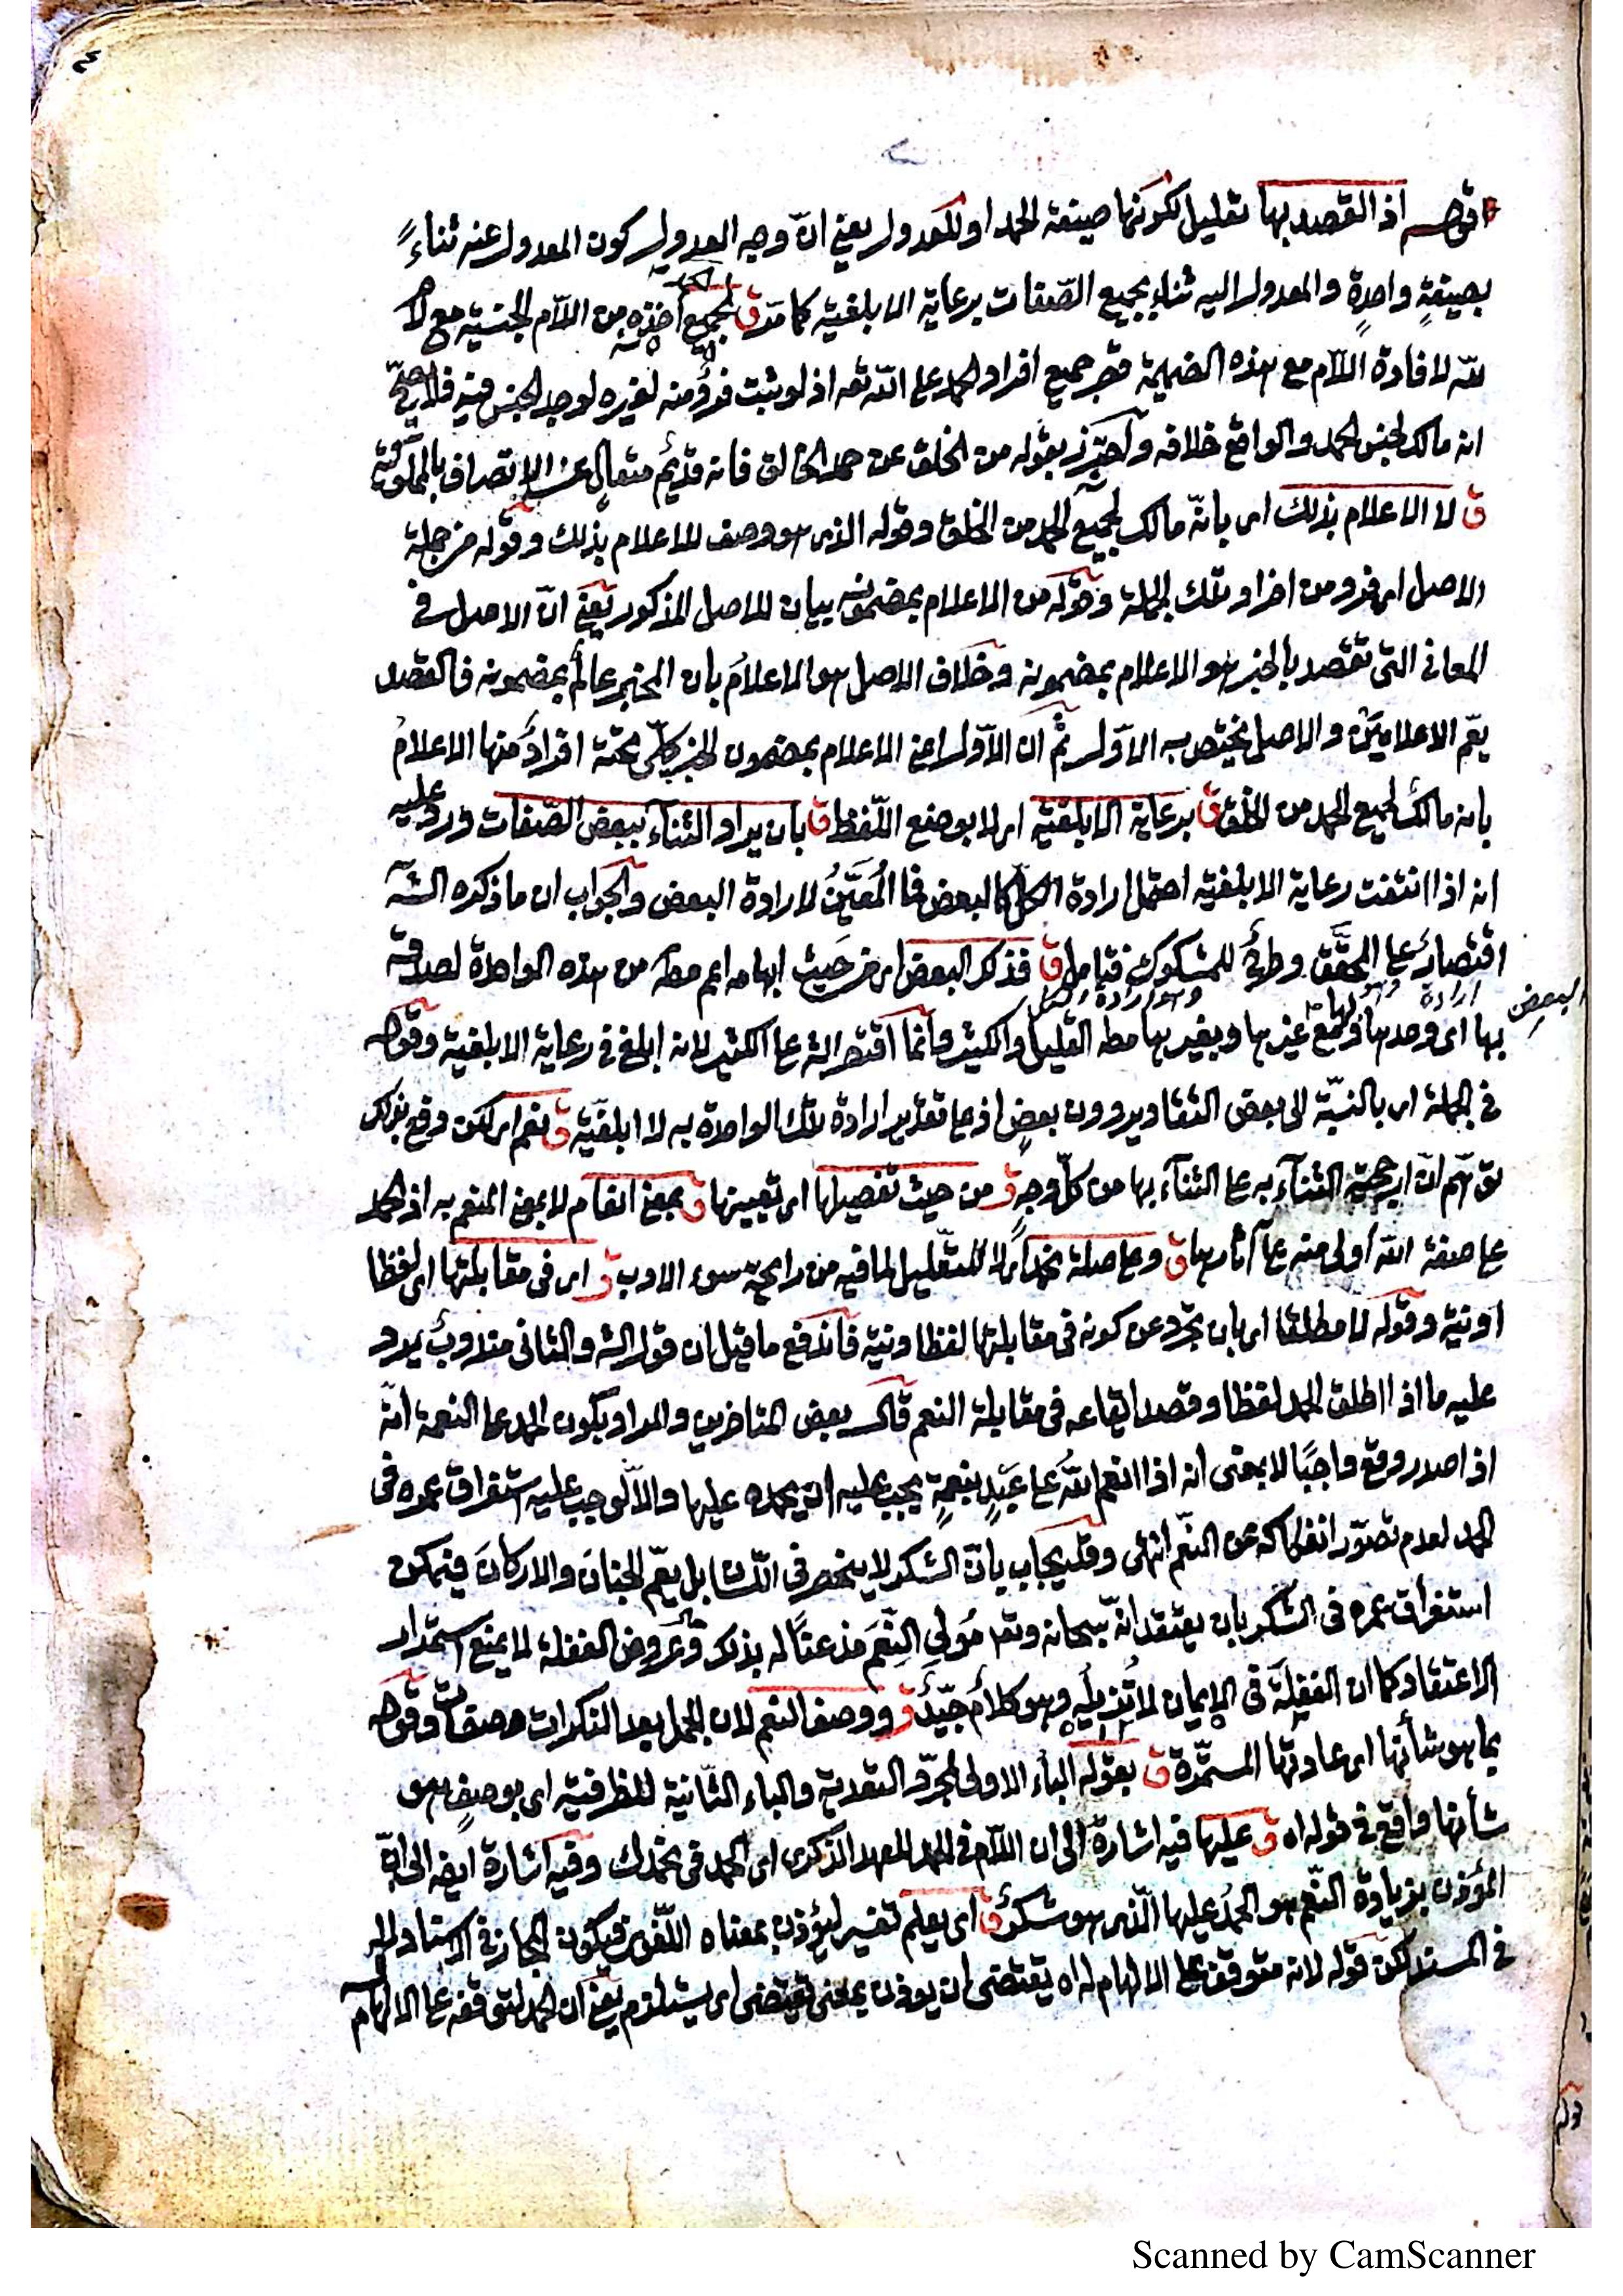 ٣
قوله اذ القصد بها تعليل لكونها صيغة الحمد او للعدول يعني انّ وجه العدول كون المعدول عنه ثناءً
بصيغةٍ واحدةٍ والمعدول اليه ثناء بجميع الصّفات برعاية الابلغيّة كما مرّ ق لجميع أخذه من اللّام الجنسيّة مع لام
للّه لافادة اللّام مع هذه الضميمة قصر جميع افراد الحمد على اللّه تعه اذ لو ثبت فردٌ منه لغيره لوجد الجنس فيه فلا يصحّ
انه مالك لجنس الحمد والواقع خلافه وآحترز بقوله من الخلق عن حمد الخالق فانه قديمٌ متعالٍ عن الاتصاف بالمملوكيّة
ق لا الاعلام بذلك اى بانّه مالك لجميع الحمد من الخلق وقوله الذى هو وصف للاعلام بذلك وقوله من جملة
الاصل اى فرد من افراد تلك الجملة وقوله من الاعلام بمضمونه بيان للاصل المذكور يعني انّ الاصل في
المعانى التى تقصد بالخبر هو الاعلام بمضمونه وخلاف الاصل هو الاعلام بان المخبر عالمٌ بمضمونه فالقصد
يعّم الاعلاميَيْن والاصل يختص به الاوّل ثم ان الاوّل اعني الاعلام بمضمون الخبر كلّى تحته افرادٌ منها الاعلام
بانه مالكٌ لجميع الحمد من الخلق ق برعاية الابلغيّة اى لا بوضع اللّفظ ق بان يراد الثناء ببعض الصّفات ورد عليه
انه اذا انتفت رعاية الابلغيّة احتمل ارادة الكلّ كالبعض فما المُعَيِّنُ لارادة البعض والجواب ان ما ذكره الشّه
اقتصارٌ على المحقَّق وطرحٌ للمشكوك فتامل ق فذكر البعض اى من حيث ابهامه اعم من هذه الواحدة لصدقه
وهو ارادة البعض
بها اى وحدها ولها مع غيرها وبغيرها القليل والكثير وآنما اقتصر الشه على الكثير لانه ابلغ في رعاية الابلغية وقوله
في الجملة اى بالنسبّة الى بعض التقادير دون بعضٍ اذ على تقدير ارادة تلك الواحدة به لا ابلغيّة ق نعم اى لكن دفع بذلك
توهّم انّ ارجحيّة الثناء به على الثناء بها من كلّ وجهٍ ق من حيث تفصيلها اى تعيينها ق بمعنى انعام لا بمعنى المنعم به اذ الحمد
على صفة اللّه أولى منه على آثارها ق وعلى صلة نحمد اى لا للتعليل لما فيه من رايحة سوء الادب ق اى في مقابلتها اى لفظا
او نيّة وقوله لا مطلقا اى بان تجرد عن كونه في مقابلتها لفظا ونية فآندفع ما قيل ان قول الشه والثانى مندوبٌ يرد
عليه ما اذا اطلق الحمد لفظا وقصد ايقاعه في مقابلة النعم قال بعض المتاخرين والمراد بكون الحمد على النعمة انّه
اذا صدر وقع واجبًا لا بمعنى انه اذا انعم اللّهُ على عَبْدٍ بنعمةٍ يجب عليه ان يحمده عليها والّا لوجب عليه استغراق عمره فى
الحمد لعدم تصوّر انفكاكه عن النّعم انتهى وقد يجاب بانّ الشكر لا ينحصر فى اللّسان بل يعّم الجنانَ والاركانَ فيمكن
استغراق عمره فى الشكر بان يعتقد انّه سبحانه وتع مُولى النِّعَم مذعنًا له بذلك وعروض الغفلة لا يمنع استمرار
الاعتقاد كما ان الغفلة فى الايمان لا تُزيله وهو كلامٌ جيّدٌ ق ووصف النعم لان الجمل بعد النكرات صفات وقوله
بما هو شأنها اى عادتها المستمّرة ق بقوله الباء الاولى لمجرّد التعدية والباء الثّانية للظرفيّة اى بوصفٍ هو
شأنها واقع في قوله اه ق عليها فيه اشارة الى ان اللّام فى الحمد للعهد الذّكرى اى الحمد فى نحمدك وفيه اشارة ايضا الى انّ
المؤذن بزيادة النّعم هو الحمدُ عليها الّذى هو شكرٌ ق اى يعلم تفسير ليؤذن بمعناه اللّغوى فيكون المجاز في الاسناد لا
في المسند لكن قوله لانه متوقف على الالهام له اه يقتضى ان يوذن بمعنى يقتضى اى يستلزم يعنى ان الحمد لتوقفه على الالهام
قوله
Scanned by CamScanner